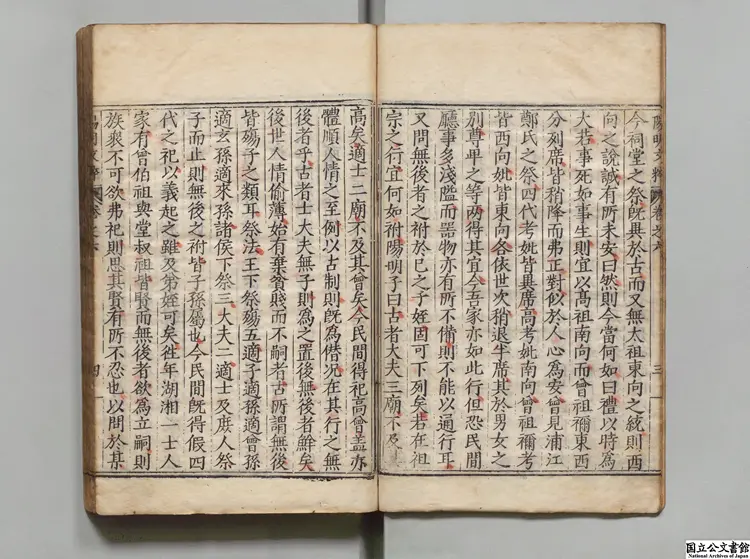 今祠堂之祭既異於古而又無太祖東向之統則西
向之說誠有所未安曰然則今當何如曰禮以時為
大若事死如事生則宜以高祖南向而曾祖禰東西
分列席皆稍降而弗正對似於人心為安曾見浦江
鄭氏之祭四代考妣皆異席高考妣南向曾祖禰考
皆西向妣皆東向各依世次稍退半席其於男女之
別尊卑之等兩得其宜今吾家亦如此行但恐民間
廳事多淺隘而器物亦有所不備則不能以通行耳
又問無後者之祔於己之子姪固可下列矣若在祖
宗之行宜何如祔陽明子曰古者大夫三廟不及
陽明文粹
卷之六
三
高矣適士二廟不及其曾矣今民間得祀高曾蓋亦
體順人情之至例以古制則既為僭况在其行之無
後者乎古者士大夫無子則為之置後無後者鮮矣
後世人情偷薄始有棄貧賤而不嗣者古所謂無後
皆殤子之類耳祭法王下祭殤五適子適孫適曾孫
適玄孫適來孫諸侯下祭三大夫二適士及庶人祭
子而止則無後之祔皆子孫屬也今民間既得假四
代之祀以義起之雖及弟姪可矣徃年湖湘一士人
家有曾伯祖與堂叔祖皆賢而無後者欲為立嗣則
族衆不可欲弗祀則思其賢有所不忍也以問於某
卷之六
四
国立公文書館
National Archives of Japan